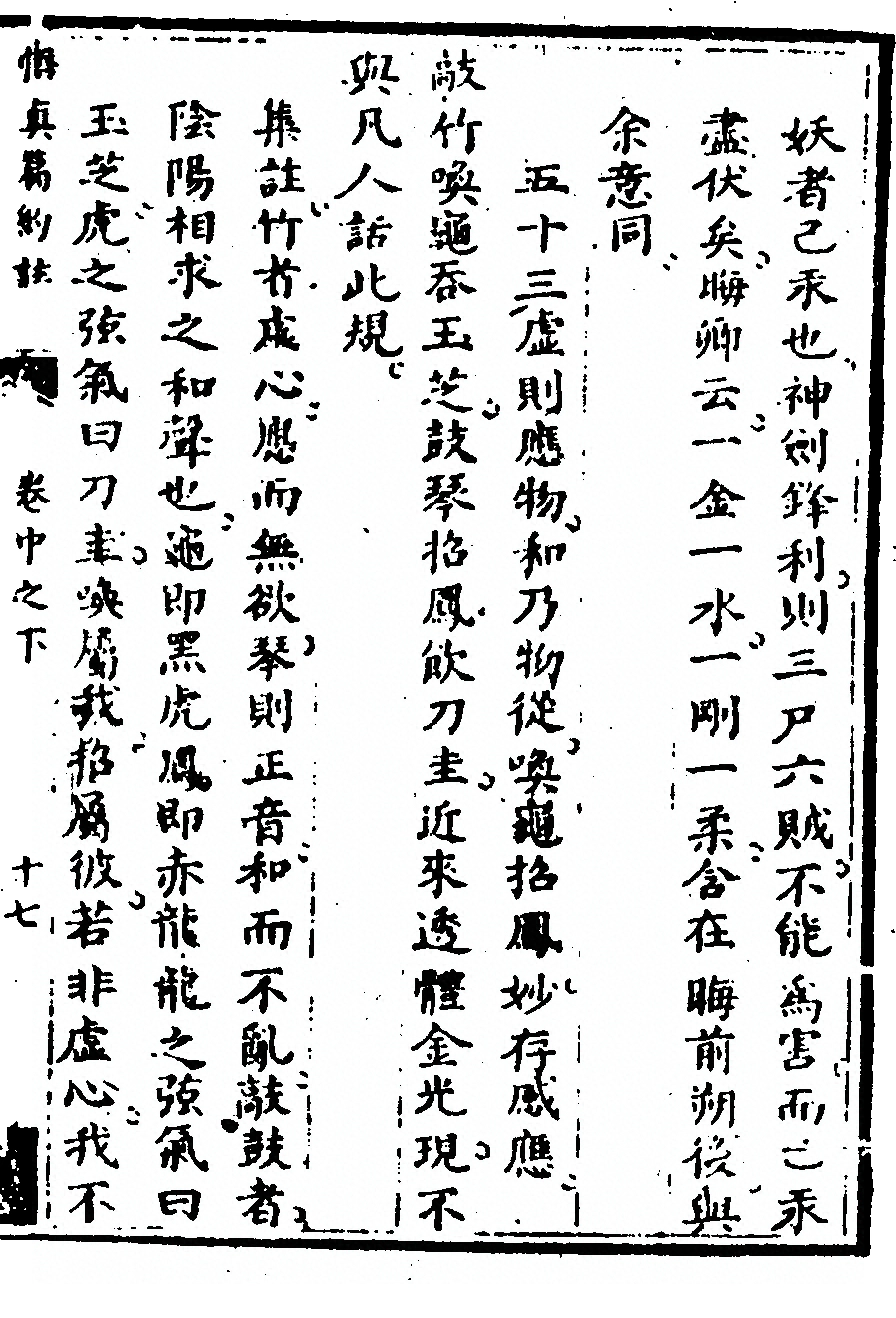 妖者己汞也神劍鋒利則三尸六賊不能爲害而己汞
盡伏矣晦卿云一金一水一剛一柔含在晦前朔後與
余意同
五十三虛則應物和乃物從喚龜招鳳妙存感應
敲竹喚龜吞玉芝鼓琴招鳳飲刀圭近來透體金光現不
與凡人話此規
集註竹者虛心應而無欲琴則正音和而不亂敲鼓者
陰陽相求之和聲也龜即黑虎鳳即赤龍龍之弦氣曰
玉芝虎之弦氣曰刀圭喚屬我招屬彼若非虛心我不
悟真篇約註 卷中之下 十七